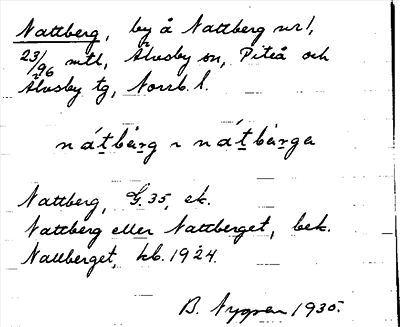 Nattberg, by å Nattberg nr 1,
23/96 mtl, Älvsby sn, Piteå och
Älvsby tg, Norrb. l.
nát̠bàr̠g ~ nát̠bàr̠ga
Nattberg, G. 35, ek.
Nattberg eller Nattberget, bek.
Nattberget, kb. 1924.
B. Nygren 1930.